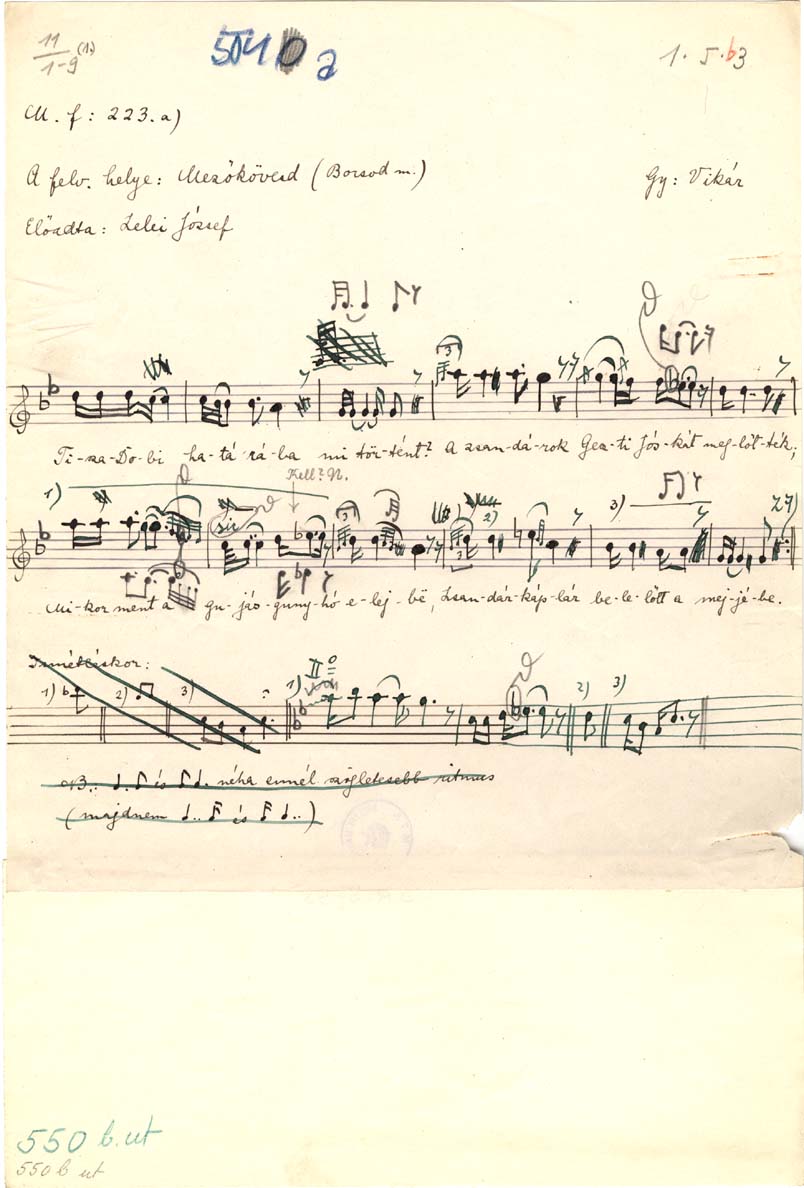 11 (1.)
1-9
504 a
1. 5. b3
M. f: 223. a)
A felv. helye: Mezőkövesd (Borsod m.)
Gy: Vikár
Előadta: Lelei József
Ti-sza-Do-bi ha-tá-rá-ba mi tör-tént? A zsan-dá-rok Gesz-ti Jós-kát meg-löt-ték;
1)
Kell? N.
2)
3)
Mi-kor ment a gu-jás-guny-hó e-lej-bë, Zsan-dár-káp-lár be-le-lőtt a mej-jé-be.
Ismétléskor:
1) 2) 3) 1) II 2) 3)
NB.: és néha ennél szögletesebb ritmus
(majdnem és )
550 b. ut
550 b ut